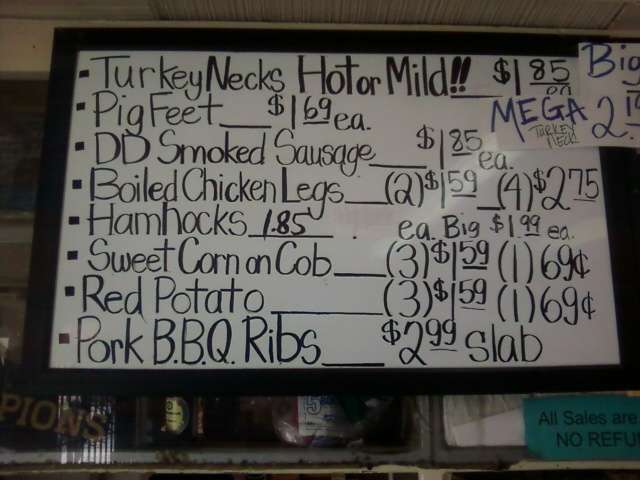 ▪ Turkey Necks Hot or Mild!! $1 85 ea Big
MEGA TURKEY NECK 2.
▪ Pig Feet___ $1 69 ea.
▪ DD Smoked Sausage___ $1 85 ea.
▪ Boiled Chicken Legs__(2)$1 59 _(4)$2 75
▪ Hamhocks 1.85 . ea. Big $1 99 ea.
▪ Sweet Corn on Cob___(3)$1 59 (1)69¢
▪ Red Potato______(3)$1 59 (1)69¢
▪ Pork B.B.Q. Ribs___ $2 99 Slab
PIONS
All Sales are
NO REFU